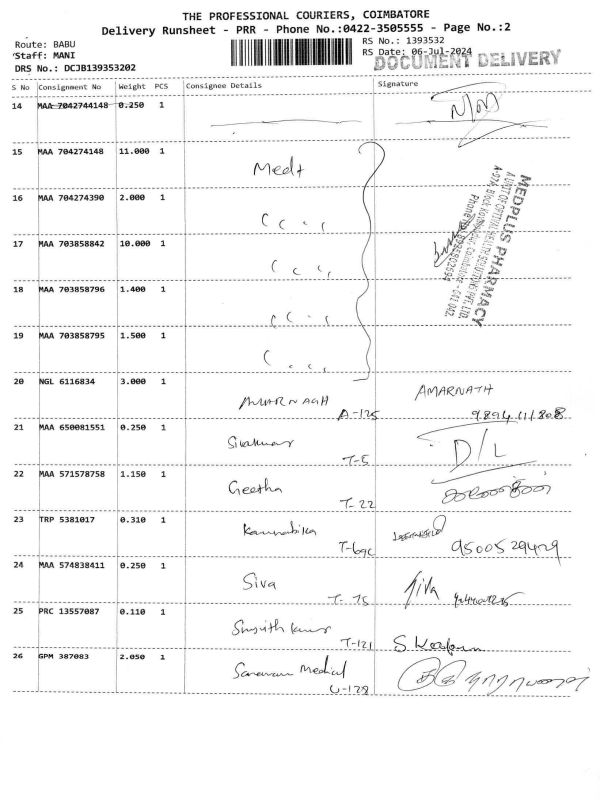 THE PROFESSIONAL COURIERS, COIMBATORE
Delivery Runsheet - PRR - Phone No.:0422-3505555 - Page No.:2
Route: BABU
Staff: MANI
DRS No.: DCJB139353202
RS No.: 1393532
RS Date: 06-Jul-2024
DOCUMENT DELIVERY
S No Consignment No Weight PCS Consignee Details Signature
14 MAA 7042744148 0.250 1 N/A
15 MAA 704274148 11.000 1 Med+
16 MAA 704274390 2.000 1
17 MAA 703858842 10.000 1
18 MAA 703858796 1.400 1
19 MAA 703858795 1.500 1
MEDPLUS PHARMACY
A UNIT OF OPTIVAL HEALTH SOLUTIONS PVT. LTD.
Coimbatore - 641 042.
20 NGL 6116834 3.000 1 AMARNATH
A-125
21 MAA 650081551 0.250 1 Sivakumar D/L
T-5
22 MAA 571578758 1.150 1 Geetha
T-22
23 TRP 5381017 0.310 1
T-69C 9500529429
24 MAA 574838411 0.250 1 Siva Siva
T-75
25 PRC 13557087 0.110 1
T-121
26 GPM 387083 2.050 1 Saravan Medical
U-128